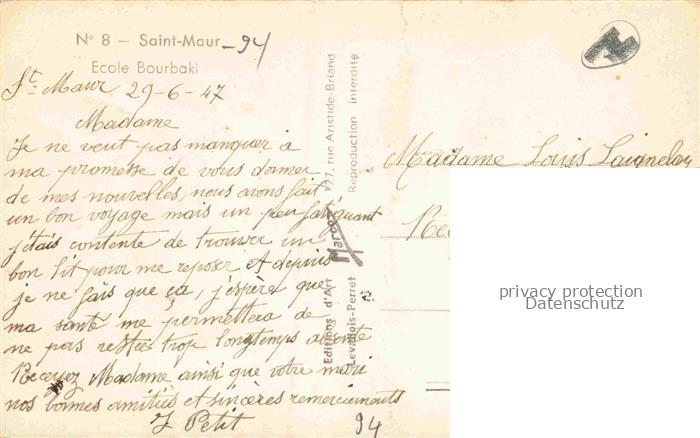 N° 8 – Saint-Maur - 94
Ecole Bourbaki
St- Maur 29-6-47
Madame
Je ne veut pas manquer à
ma promesse de vous donner
de mes nouvelles, nous avons fait
un bon voyage mais un peu fatiguant
j'étais contente de trouver un
bon lit pour me reposer et depuis
je ne fais que ça, j'espère que
ma santé me permettera de
ne pas restée trop longtemps absente
Recevez Madame ainsi que votre mari
nos bonnes amitiés et sincères remerciements
J Petit
94
Editions d'Art Marcel 127, rue Aristide-Briand
Levallois-Perret Reproduction interdite
Madame Louis
privacy protection
Datenschutz